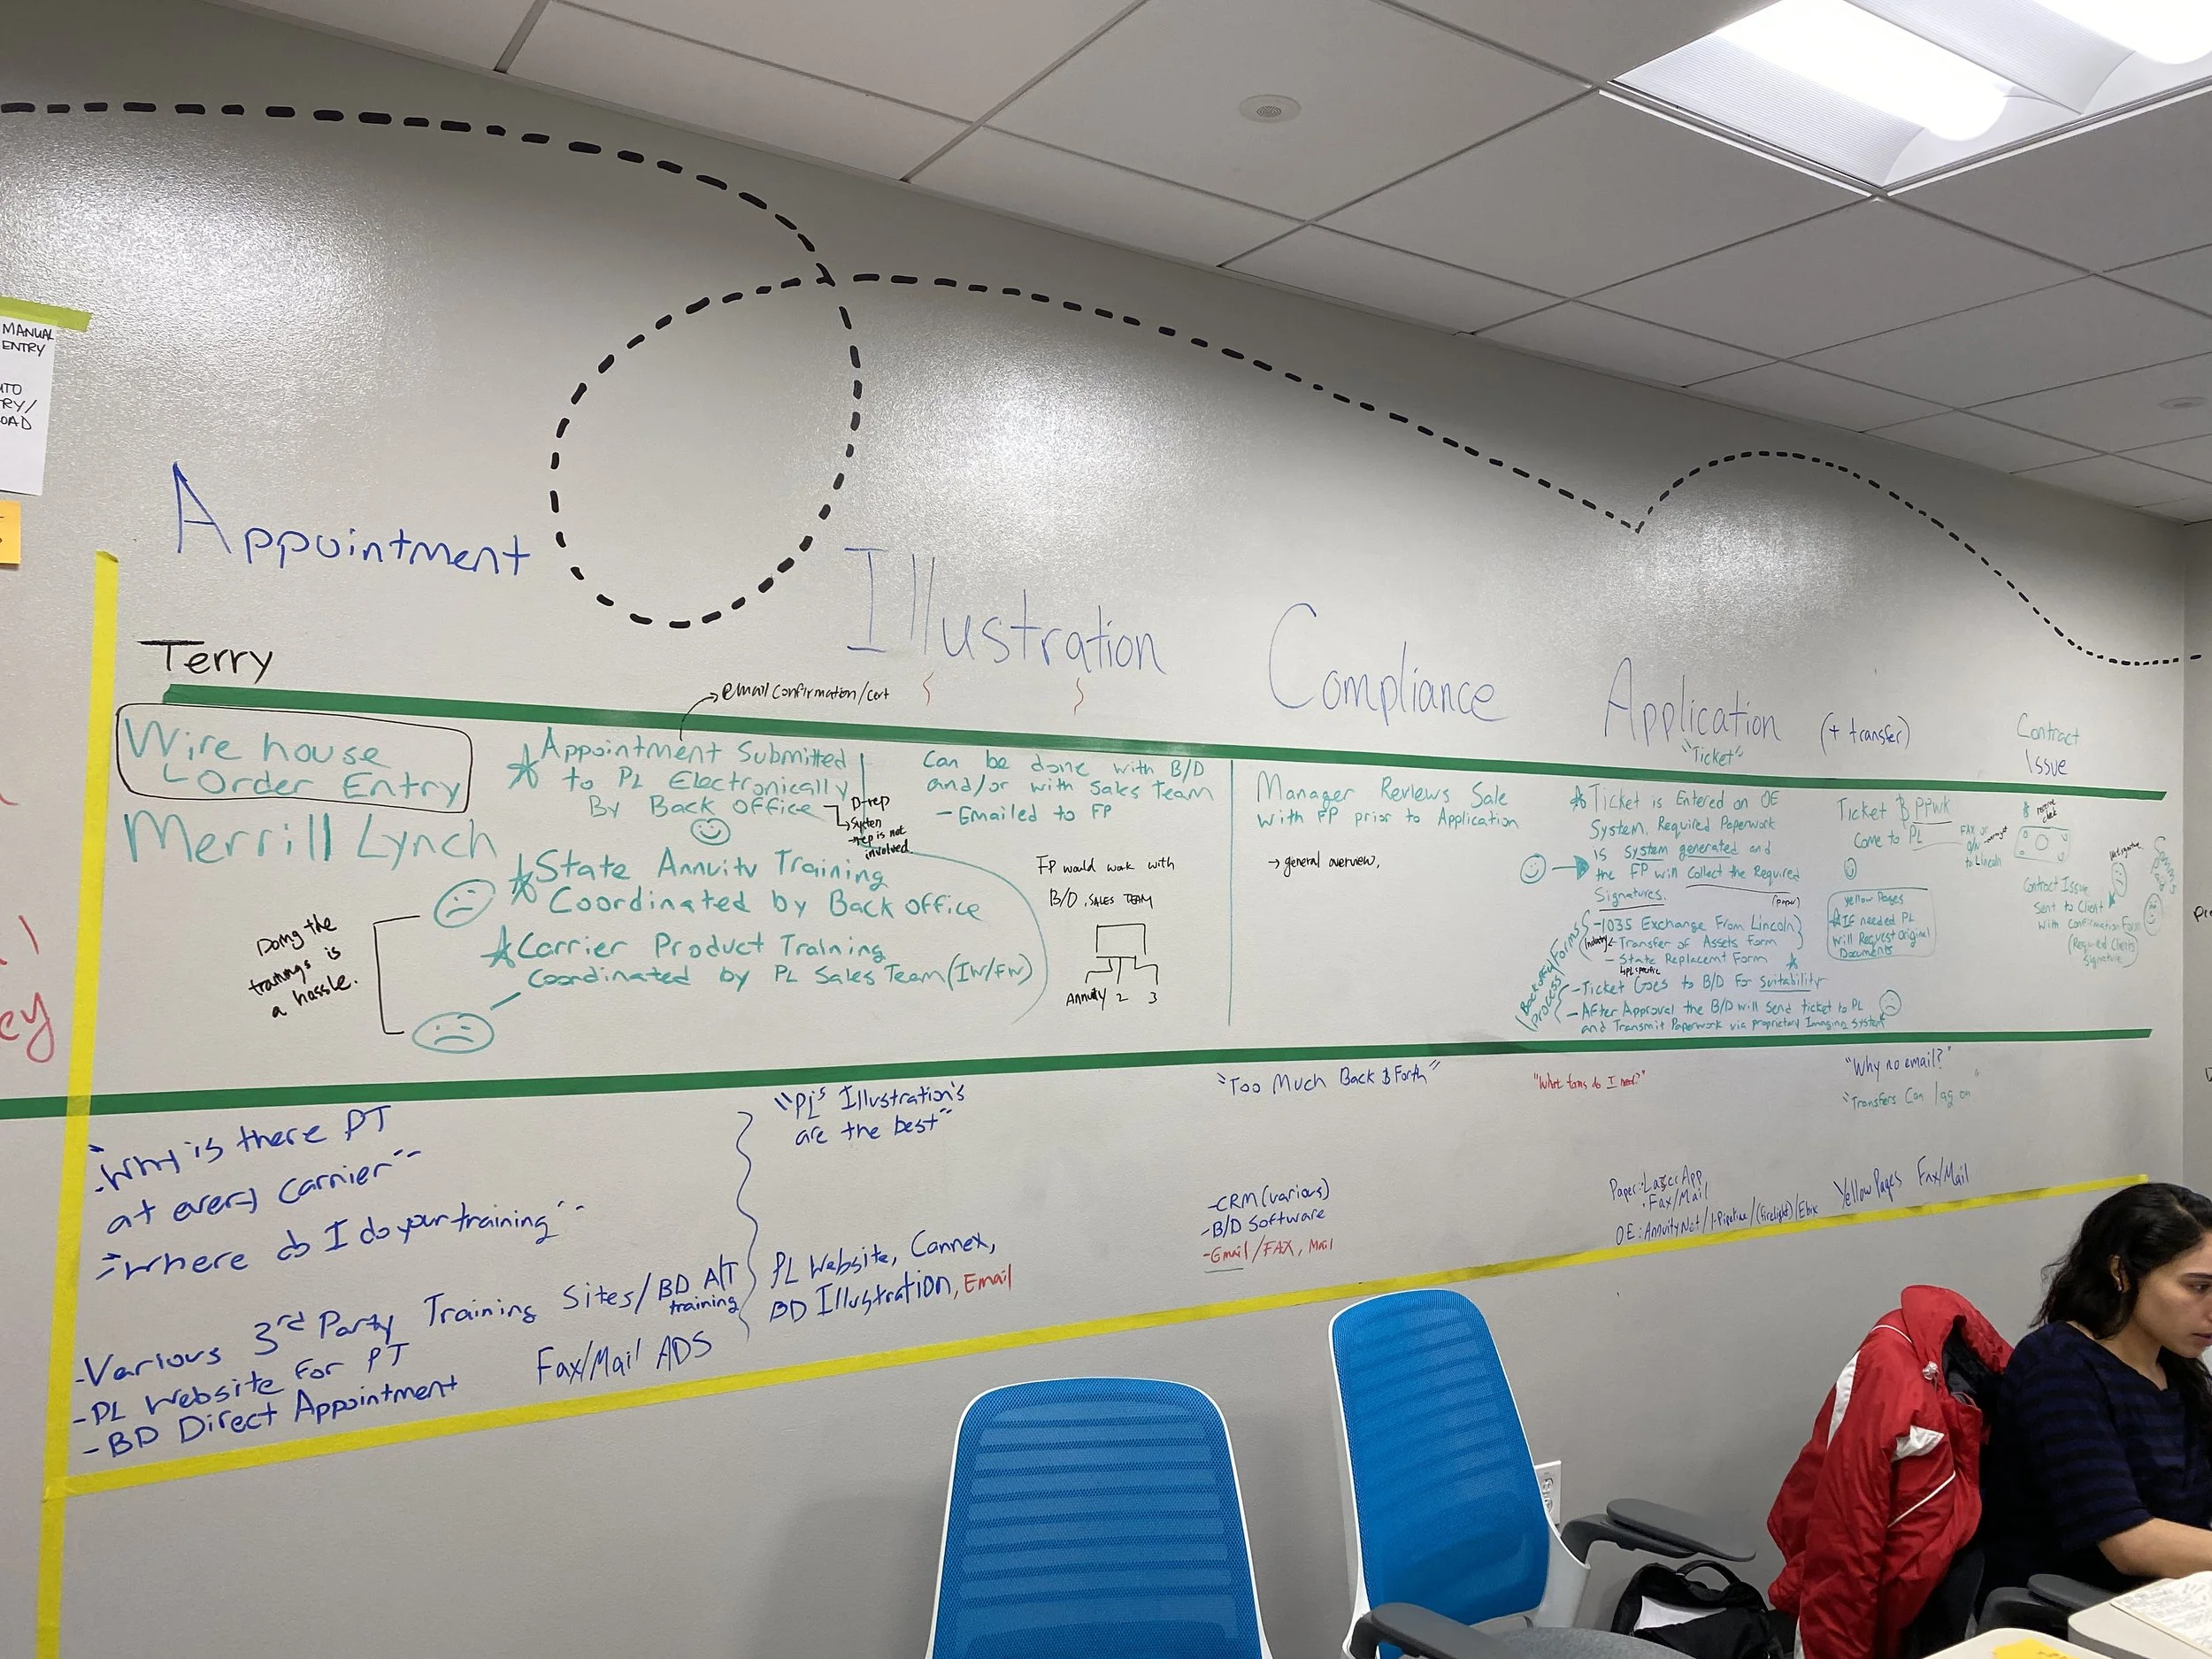 MANUAL
ENTRY
Appointment
Illustration
Compliance
Application
"Ticket"
(+ transfer)
Contract
Issue
Terry
email confirmation/cert
Wire house
Order Entry
Merrill Lynch
Appointment Submitted
to PL Electronically
By Back Office
D-rep
System
rep is not
involved
State Annuity Training
Coordinated by Back office
Carrier Product Training
coordinated by PL Sales Team (IW/FW)
Doing the
trainings is
a hassle.
Can be done with B/D
and/or with Sales Team
- Emailed to FP
FP would work with
B/D, SALES TEAM
Annuity 2 3
Manager Reviews Sale
with FP prior to Application
→ general overview,
Ticket is Entered on OE
System. Required Paperwork
is system generated and
the FP will Collect the Required
Signatures.
(paper)
-1035 Exchange From Lincoln
(Industry
- Transfer of Assets Form
- State Replacemt Form
PL specific
Forms
Backoffice
Process
-Ticket Goes to B/D For Suitability
- After Approval the B/D will Send ticket to PL
and Transmit Paperwork via proprietary Imaging System
Ticket & PPWK
Come to PL
FAX or
to Lincoln
Yellow Pages
If needed PL
will Request Original
Documents
Contract Issue
Sent to Client
with Confirmation Form
(Required Clients
Signature)
"Why is there PT
at every carrier"
"Where do I do your training"
"PL's Illustration's
are the best"
"Too Much Back & Forth"
"What forms do I need?"
"Why no email?"
"Transfers Can lag on"
-Various 3rd Party Training Sites/BD A/T
training
-PL Website for PT
-BD Direct Appointment
Fax/Mail ADS
PL Website, Cannex,
BD Illustration, Email
-CRM (various)
-B/D Software
-Email/FAX, Mail
Paper: LazerApp
• Fax/Mail
OE: AnnuityNet/I-Pipeline/(firelight)/Ebix
Yellow Pages Fax/Mail